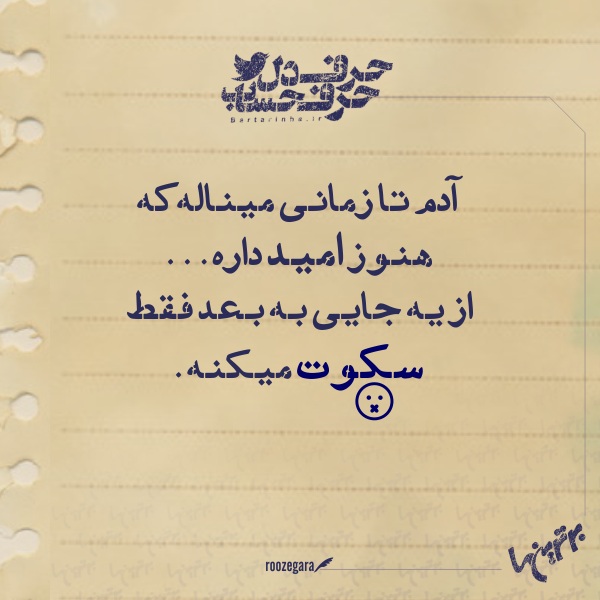 حرف دل
حرف حساب
Bartarinha.ir
آدم تا زمانی میناله که
هنوز امید داره...
از یه جایی به بعد فقط
سکوت میکنه.
roozegara
برترین‌ها